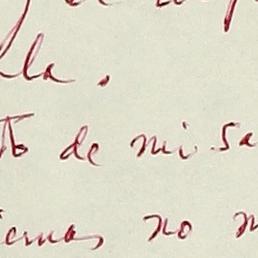 lla.
to de mi sa
iernas no m